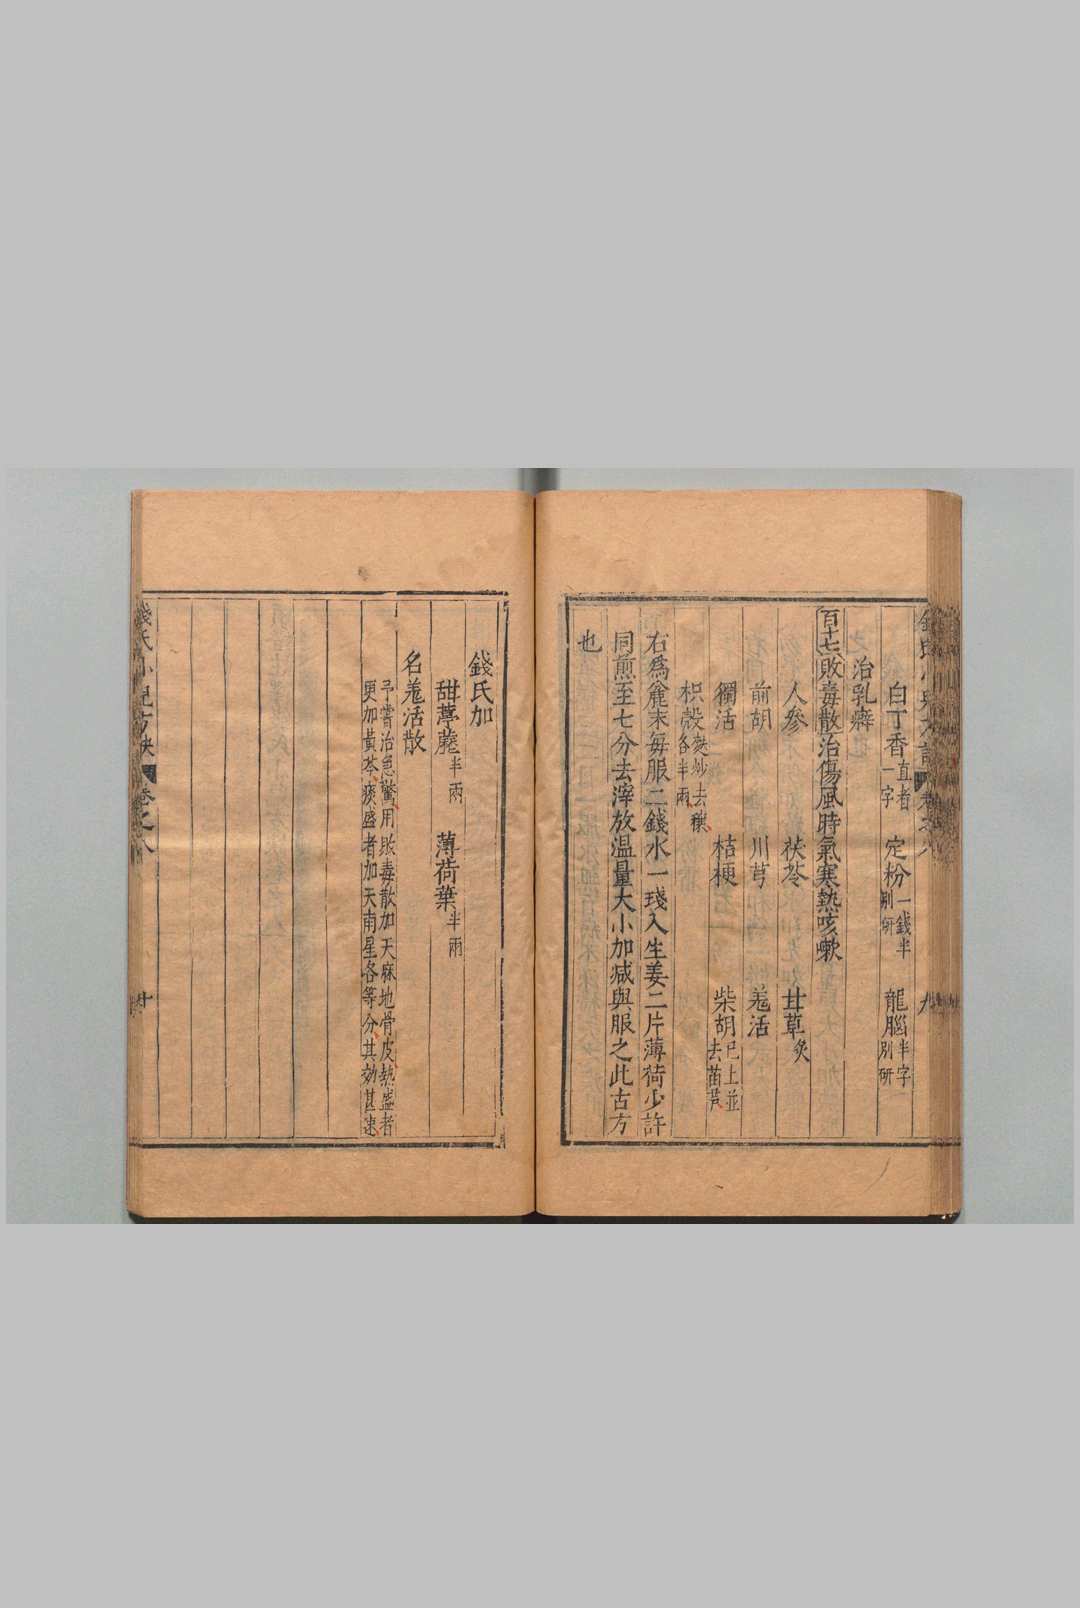 白丁香直者一字 定粉一錢半別研 龍腦半字別研
治乳癖
百十七敗毒散治傷風時氣寒熱咳嗽
人參 茯苓 甘草炙
前胡 川芎 羗活
獨活 桔梗 柴胡已上並去苗芦
枳殼麩炒去穰各半兩
右爲麄末每服二錢水一琖入生姜二片薄荷少許
同煎至七分去滓放温量大小加減與服之此古方
也
錢氏加
甜葶藶半兩 薄荷葉半兩
名羗活散
予嘗治急驚用敗毒散加天麻地骨皮熱盛者
更加黃芩痰盛者加天南星各等分其効甚速
錢氏小兒方訣 卷之八 十